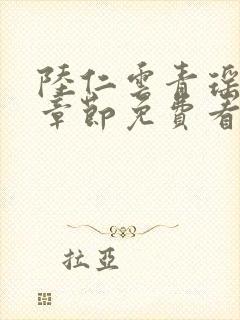 陸仁雲青瑶
章節免費看
拉亞